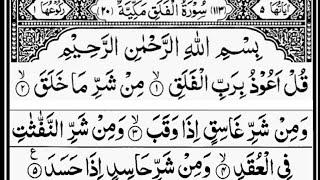 اٰيَاتُهَا ٥ (١١٣) سُوْرَةُ الْفَلَقِ مَكِّيَّةٌ (٢٠) رُكُوْعُهَا ١
بِسْمِ اللّٰهِ الرَّحْمٰنِ الرَّحِيْمِ
قُلْ اَعُوْذُ بِرَبِّ الْفَلَقِ ۙ﴿١﴾ مِنْ شَرِّ مَا خَلَقَ ۙ﴿٢﴾
وَمِنْ شَرِّ غَاسِقٍ اِذَا وَقَبَ ۙ﴿٣﴾ وَمِنْ شَرِّ النَّفّٰثٰتِ
فِى الْعُقَدِ ۙ﴿٤﴾ وَمِنْ شَرِّ حَاسِدٍ اِذَا حَسَدَ ﴿٥﴾ ع